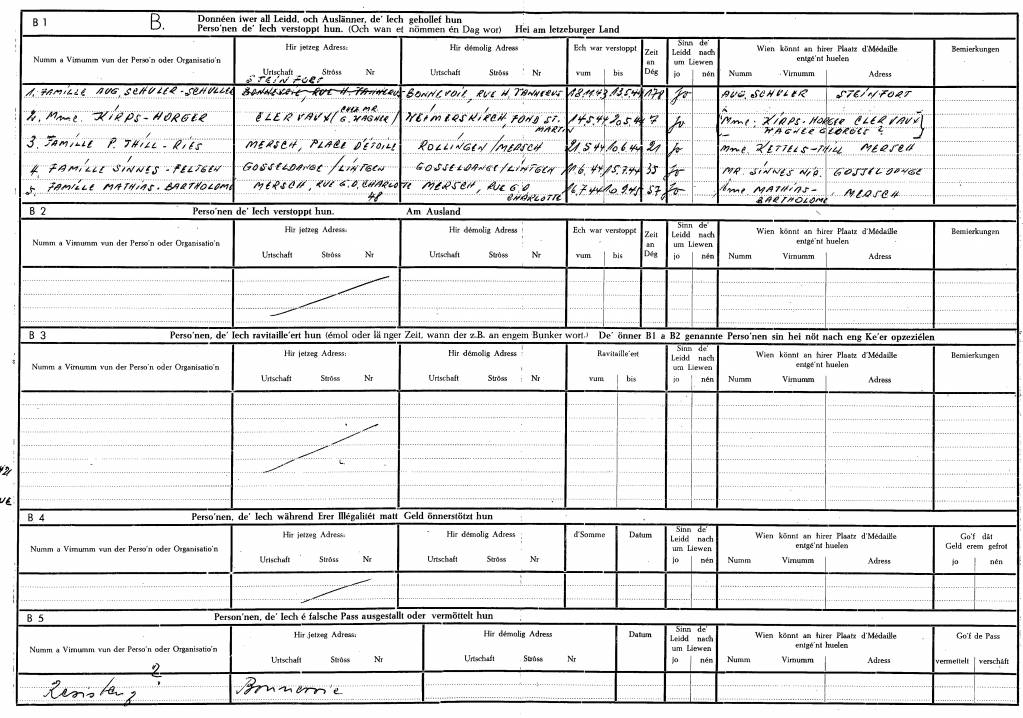 B 1 B. Donnéen iwer all Leidd, och Auslänner, de' Iech gehollef hun
Perso'nen de' Iech verstoppt hun. (Och wan et nömmen én Dag wor) Hei am letzeburger Land
Numm a Virnumm vun der Perso'n oder Organisatio'n Hir jetzeg Adress: Hir démolig Adress Ech war verstoppt Zeit an Dég Sinn de' Leidd nach um Liewen Wien könnt an hirer Plaatz d'Médaille entgé'nt huelen Bemierkungen
Urtschaft Ströss Nr Urtschaft Ströss Nr vum bis jo nén Numm Virnumm Adress
STEINFORT
1. FAMILLE AUG. SCHULER-SCHULLER BONNEVOIE, RUE H. TANNERUS BONNEVOIE, RUE H. TANNERUS 18.11.43 13.5.44 178 Jo AUG. SCHULER STEINFORT
2. Mme. KIRPS-HORGER CLERVAUX (CHEZ MR. G. WAGNER) HEIMERSKIRCH, FOND ST. MARTIN 14.5.44 20.5.44 7 Jo (Mme. KIRPS-HORGER CLERVAUX
WAGNER GEORGES ?)
3. FAMILLE P. THILL-RIES MERSCH, PLACE D'ETOILE ROLLINGEN/MERSCH 21.5.44 10.6.44 21 Jo Mme. KETTELS-THILL MERSCH
4. FAMILLE SINNES-FELTGEN GOSSELDANGE/LINTGEN GOSSELDANGE/LINTGEN 11.6.44 15.7.44 35 Jo MR. SINNES NIC. GOSSELDANGE
5. FAMILLE MATHIAS-BARTHOLOME MERSCH, RUE G.D. CHARLOTTE 48 MERSCH, RUE G.D CHARLOTTE 16.7.44 10.9.44 57 Jo Mme MATHIAS-BARTHOLOME MERSCH
B 2 Perso'nen de' Iech verstoppt hun. Am Ausland
Numm a Virnumm vun der Perso'n oder Organisatio'n Hir jetzeg Adress: Hir démolig Adress Ech war verstoppt Zeit an Dég Sinn de' Leidd nach um Liewen Wien könnt an hirer Plaatz d'Médaille entgé'nt huelen Bemierkungen
Urtschaft Ströss Nr Urtschaft Ströss Nr vum bis jo nén Numm Virnumm Adress
B 3 Perso'nen, de' Iech ravitaille'ert hun (émol oder länger Zeit, wann der z.B. an engem Bunker wort.) De' önner B1 a B2 genannte Perso'nen sin hei nöt nach eng Ke'er opzeziélen
Numm a Virnumm vun der Perso'n oder Organisatio'n Hir jetzeg Adress: Hir démolig Adress Ravitaille'ert Sinn de' Leidd nach um Liewen Wien könnt an hirer Plaatz d'Médaille entgé'nt huelen Bemierkungen
Urtschaft Ströss Nr Urtschaft Ströss Nr vum bis jo nén Numm Virnumm Adress
421
UE
B 4 Perso'nen, de' Iech während Erer Illégalitét matt Geld önnerstötzt hun
Numm a Virnumm vun der Perso'n oder Organisatio'n Hir jetzeg Adress: Hir démolig Adress d'Somme Datum Sinn de' Leidd nach um Liewen Wien könnt an hirer Plaatz d'Médaille entgé'nt huelen Go'f dât Geld erem gefrot
Urtschaft Ströss Nr Urtschaft Ströss Nr jo nén Numm Virnumm Adress jo nén
B 5 Person'nen, de' Iech é falsche Pass ausgestallt oder vermöttelt hun
Numm a Virnumm vun der Perso'n oder Organisatio'n Hir jetzeg Adress: Hir démolig Adress Datum Sinn de' Leidd nach um Liewen Wien könnt an hirer Plaatz d'Médaille entgé'nt huelen Go'f de Pass
Urtschaft Ströss Nr Urtschaft Ströss Nr jo nén Numm Virnumm Adress vermettelt verschâft
Resistenz ? Bonnevoie